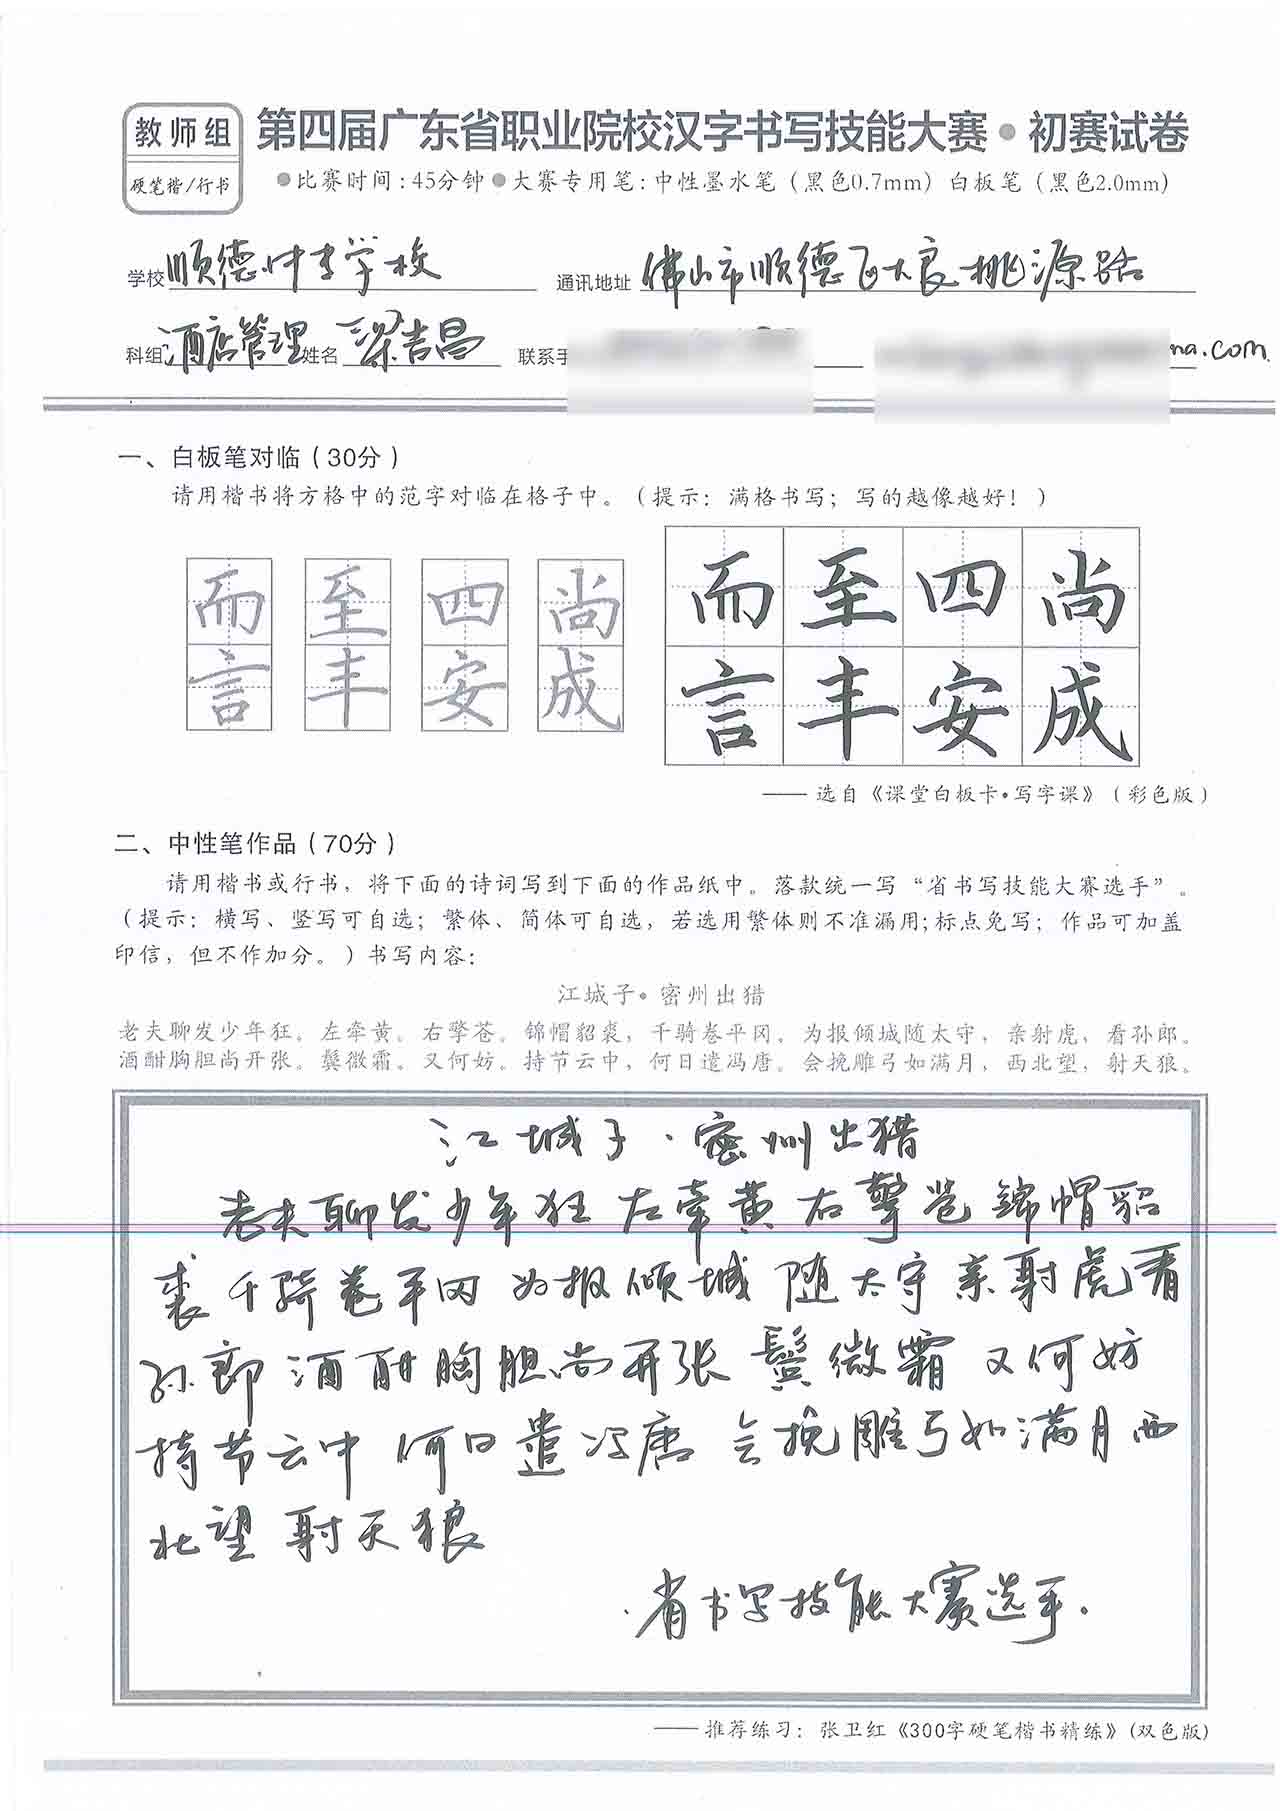 教师组
硬笔楷/行书
第四届广东省职业院校汉字书写技能大赛•初赛试卷
●比赛时间:45分钟●大赛专用笔:中性墨水笔（黑色0.7mm）白板笔（黑色2.0mm）
学校 顺德中专学校 通讯地址 佛山市顺德区大良桃源路
科组 酒店管理 姓名 梁吉昌 联系手 na.com
一、白板笔对临（30分）
请用楷书将方格中的范字对临在格子中。（提示：满格书写；写的越像越好！）
而 至 四 尚 而 至 四 尚
言 丰 安 成 言 丰 安 成
——选自《课堂白板卡•写字课》（彩色版）
二、中性笔作品（70分）
请用楷书或行书，将下面的诗词写到下面的作品纸中。落款统一写“省书写技能大赛选手”。
（提示：横写、竖写可自选；繁体、简体可自选，若选用繁体则不准漏用;标点免写；作品可加盖
印信，但不作加分。）书写内容：
江城子•密州出猎
老夫聊发少年狂。左牵黄。右擎苍。锦帽貂裘，千骑卷平冈。为报倾城随太守，亲射虎，看孙郎。
酒酣胸胆尚开张。鬓微霜。又何妨。持节云中，何日遣冯唐。会挽雕弓如满月，西北望，射天狼。
江城子·密州出猎
老夫聊发少年狂 左牵黄 右擎苍 锦帽貂
裘 千骑卷平冈 为报倾城 随太守 亲射虎 看
孙郎 酒酣胸胆尚开张 鬓微霜 又何妨
持节云中 何日遣冯唐 会挽雕弓如满月 西
北望 射天狼
省书写技能大赛选手.
——推荐练习：张卫红《300字硬笔楷书精练》(双色版)